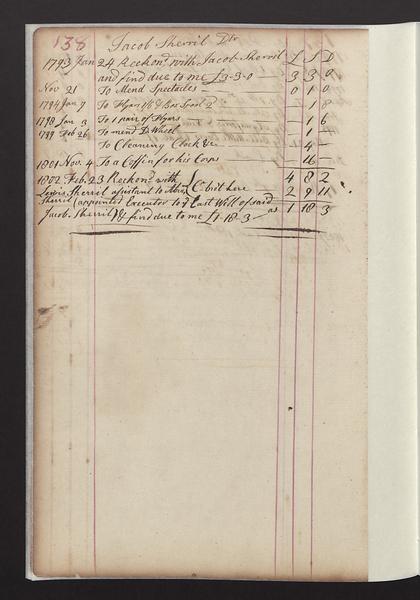 138 Jacob Sherril Dtr
1793 Jan 24 Reckond with Jacob Sherril L S D
and find due to me £3-3-0 3 3 0
Nov 21 To Mend Spectacles 0 1 0
1794 Jan 7 To 1 8
1798 Jan 3 To 1 pair of flyers 1 6
1799 Feb 26 To mend Do Wheel 1
To Cleaning Clock &c 4
1801 Nov. 4 To a Coffin for his Corps 16
1802 Feb. 23 Reckond with 4 8 2
Lewis Sherril assistant to Abrm Cr bit here 2 9 11
Sherril (appointed Executor to ye Last Will of said 1 18 3
Jacob Sherril) & find due to me £1-18-3